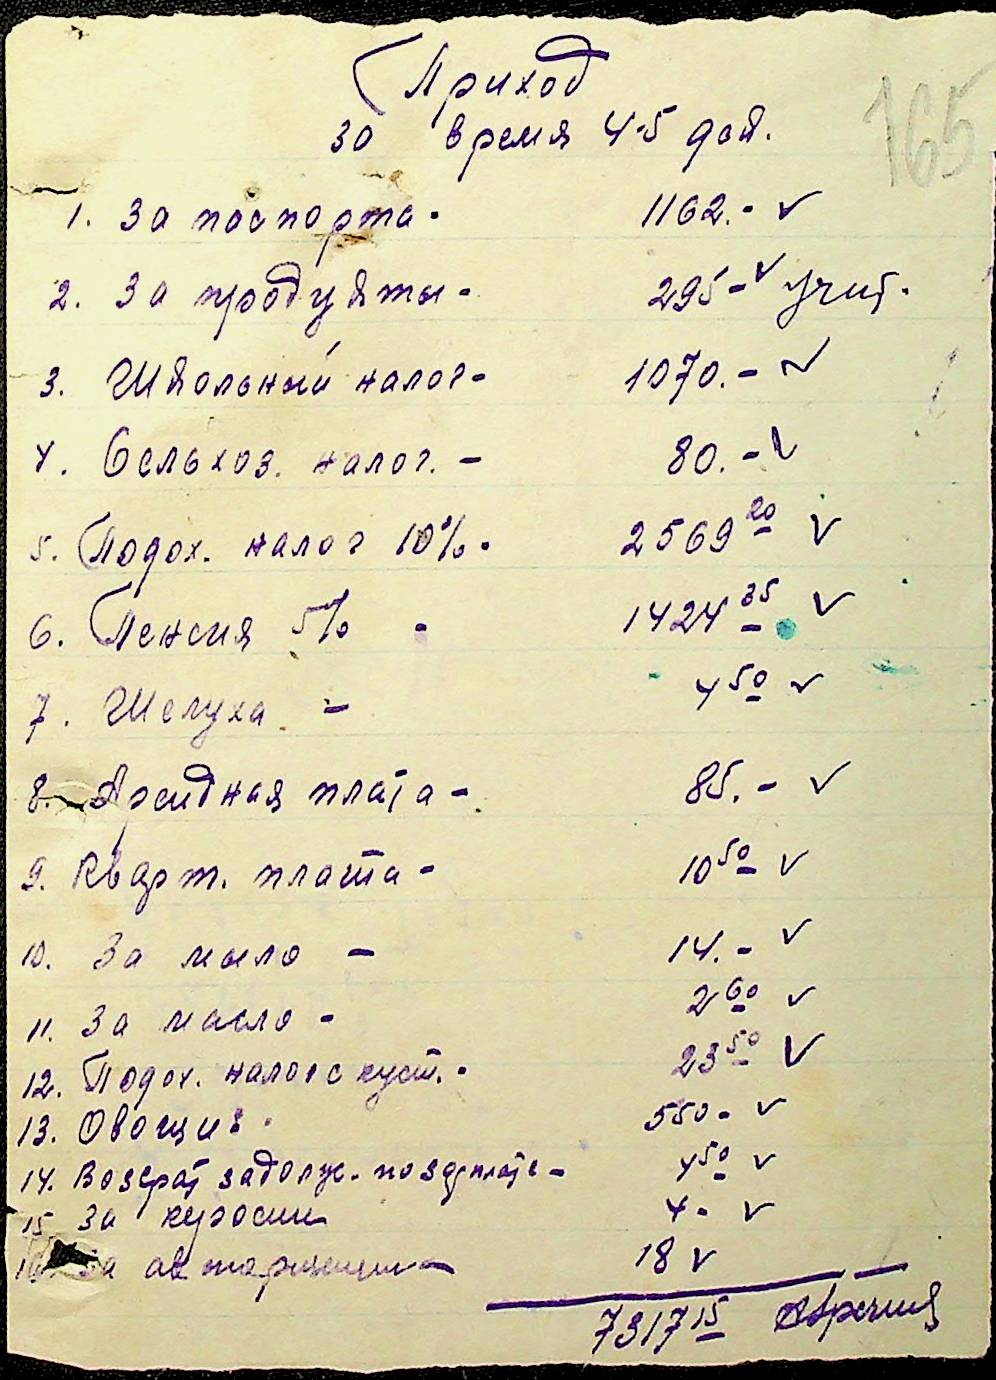 Приход
165
за время 4-5 дек.
1. За паспорта - 1162.-
2. За продукты - 295- учит.
3. Школьный налог - 1070.-
4. Сельхоз. налог. - 80.-
5. Подох. налог 10%. 2569 20
6. Пенсия 5% - 1424 35
7. Шелуха - 4 50
8. Арендная плата - 85.-
9. Кварт. плата - 10 50
10. За мыло - 14.-
11. За масло - 2 60
12. Подох. налог с куст. - 23 50
13. Овощи: 550-
14. Возврат задолж. по зарплате - 4 50
15 За керосин 4-
16 За 18
7317 15